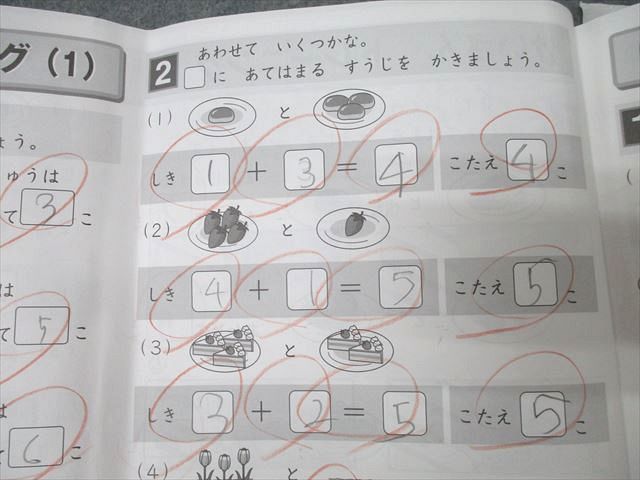 グ(1)
ょう。
ゅうは
て 3 こ
は
て 5 こ
は
て 6 こ
2 あわせて いくつかな。
□に あてはまる すうじを かきましょう。
(1) と
しき 1 + 3 = 4 こたえ 4 こ
(2) と
しき 4 + 1 = 5 こたえ 5 こ
(3) と
しき 3 + 2 = 5 こたえ 5 こ
(4) と